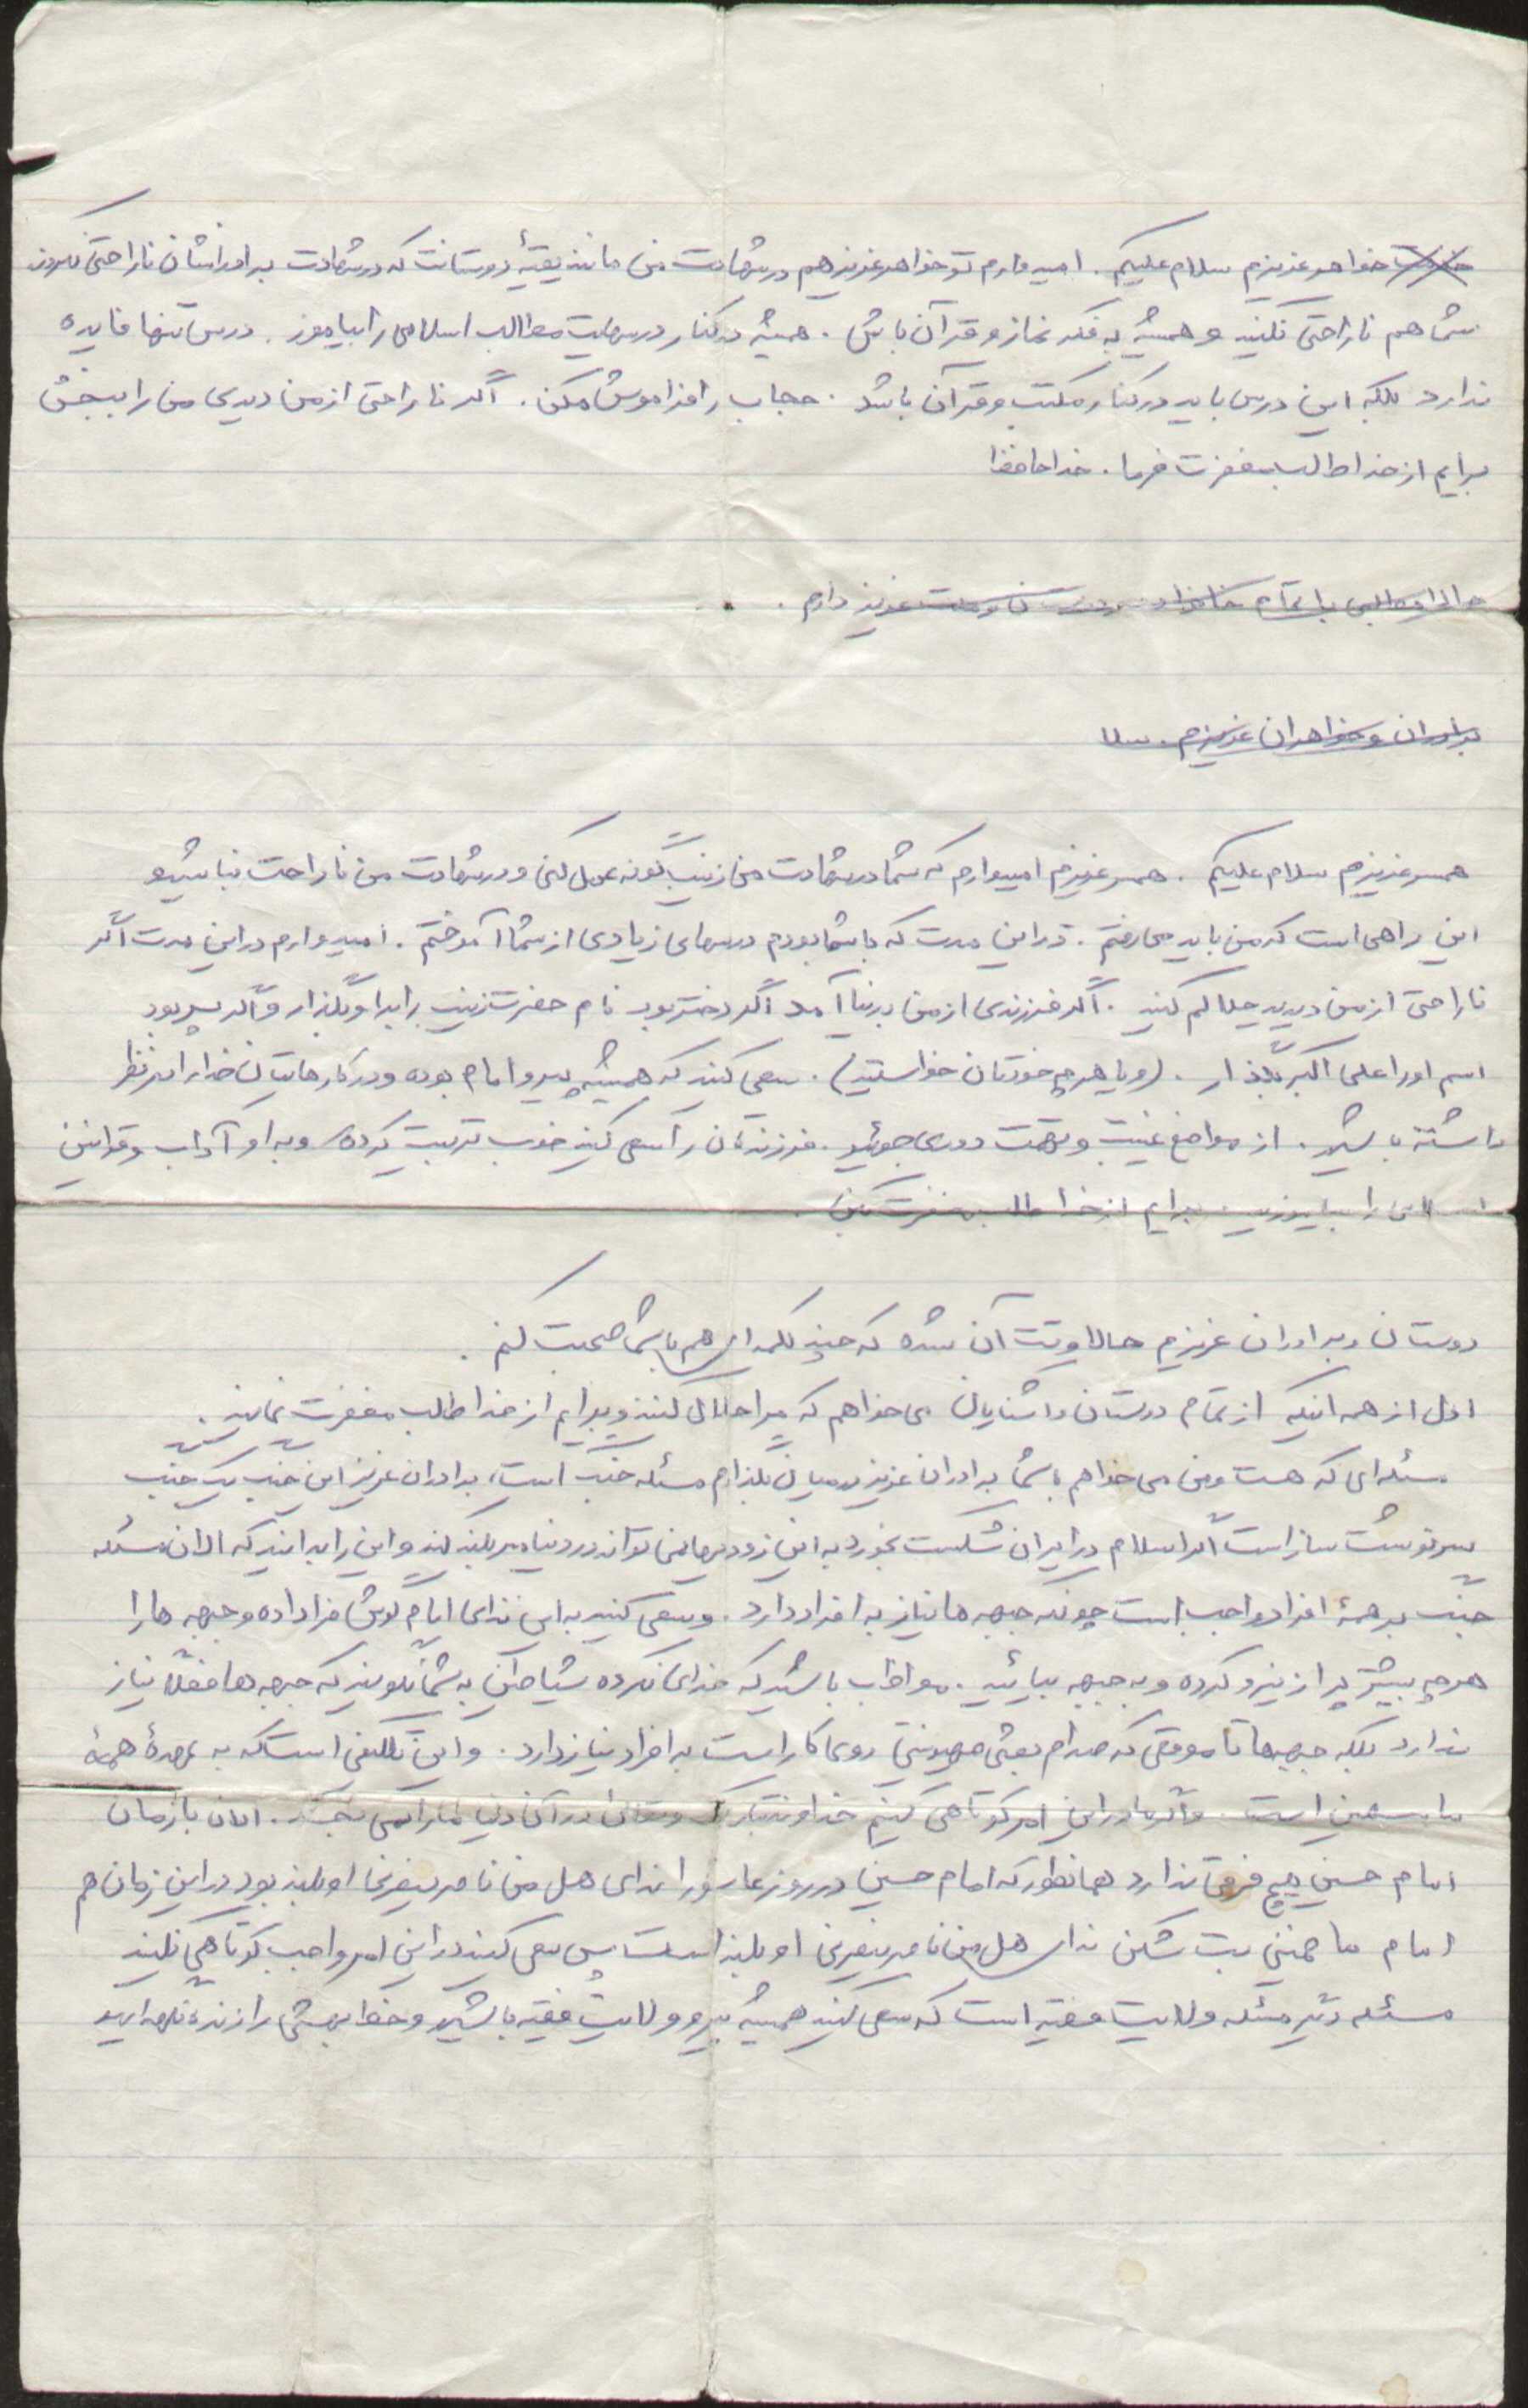 خواهر عزیزم سلام علیکم. امیدوارم تو خواهر عزیزم هم در شهادت من مانند بقیهٔ دوستانت که در شهادت برادرانشان ناراحتی نکردند
شما هم ناراحتی نکنید و همیشه به فکر نماز و قرآن باش. همیشه در کنار درسهایت مطالب اسلامی را بیاموز. درس تنها فایده
ندارد بلکه این درس باید در کنار مکتب و قرآن باشد. حجاب را فراموش مکن. اگر ناراحتی از من دیدی من را ببخش
برایم از خدا طلب مغفرت فرما. خداحافظ
حالا مطلبی با تمام خانواده دوستان و ملت عزیز دارم.
برادران و خواهران عزیزم. سلا
همسر عزیزم سلام علیکم. همسر عزیزم امیدوارم که شما در شهادت من زینب گونه عمل کنی و در شهادت من ناراحت نباشید و
این راهی است که من باید می رفتم. در این مدت که با شما بودم درسهای زیادی از شما آموختم. امیدوارم در این مدت اگر
ناراحتی از من دیدید حلالم کنید. اگر فرزندی از من بدنیا آمد اگر دختر بود نام حضرت زینب را برا او بگذار و اگر پسر بود
اسم او را علی اکبر بگذار. (و یا هرچه خودتان خواستید). سعی کنید که همیشه پیرو امام بوده و در کارهایتان خدا را در نظر
داشته باشید. از مواضع غیبت و تهمت دوری جوئید. فرزندتان را سعی کنید خوب تربیت کرده و به او آداب و قوانین
اسلامی را بیاموزید. برایم از خدا طلب مغفرت کن.
دوستان و برادران عزیزم حالا وقت آن شده که چند کلمه ای هم با شما صحبت کنم.
اول از همه اینکه از تمام دوستان و آشنایان می خواهم که مرا حلال کنند و برایم از خدا طلب مغفرت نمایند.
مسئله ای که هست و من می خواهم با شما برادران عزیز در میان بگذارم مسئله جنگ است، برادران عزیز این جنگ یک جنگ
سرنوشت ساز است اگر اسلام در ایران شکست بخورد به این زودیها نمی تواند در دنیا سر بلند کند و این را بدانید که الان مسئله
جنگ بر همهٔ افراد واجب است چونکه جبهه ها نیاز به افراد دارد. و سعی کنید به این ندای امام گوش فرا داده و جبهه ها را
هرچه بیشتر پر از نیرو کرده و به جبهه بیائید. مواظب باشید که خدای نکرده شیاطین به شما نگویند که جبهه ها فعلاً نیاز
ندارد بلکه جبهه ها تا موقعی که صدام بعثی صهیونیستی روی کار است به افراد نیاز دارد. و این تکلیفی است که به عهدهٔ همهٔ
ما مسلمین است. و اگر ما در این امر کوتاهی کنیم خداوند تبارک و تعالی در آن دنیا ما را نمی بخشد. الان با زمان
امام حسین هیچ فرقی ندارد همانطور که امام حسین در روز عاشورا ندای هل من ناصر ینصرنی او بلند بود در این زمان هم
امام ما خمینی بت شکن ندای هل من ناصر ینصرنی او بلند است پس سعی کنید در این امر واجب کوتاهی نکنید
مسئله دیگر مسئله ولایت فقیه است که سعی کنید همیشه پیرو ولایت فقیه باشید و خط بهشتی را زنده نگهدارید